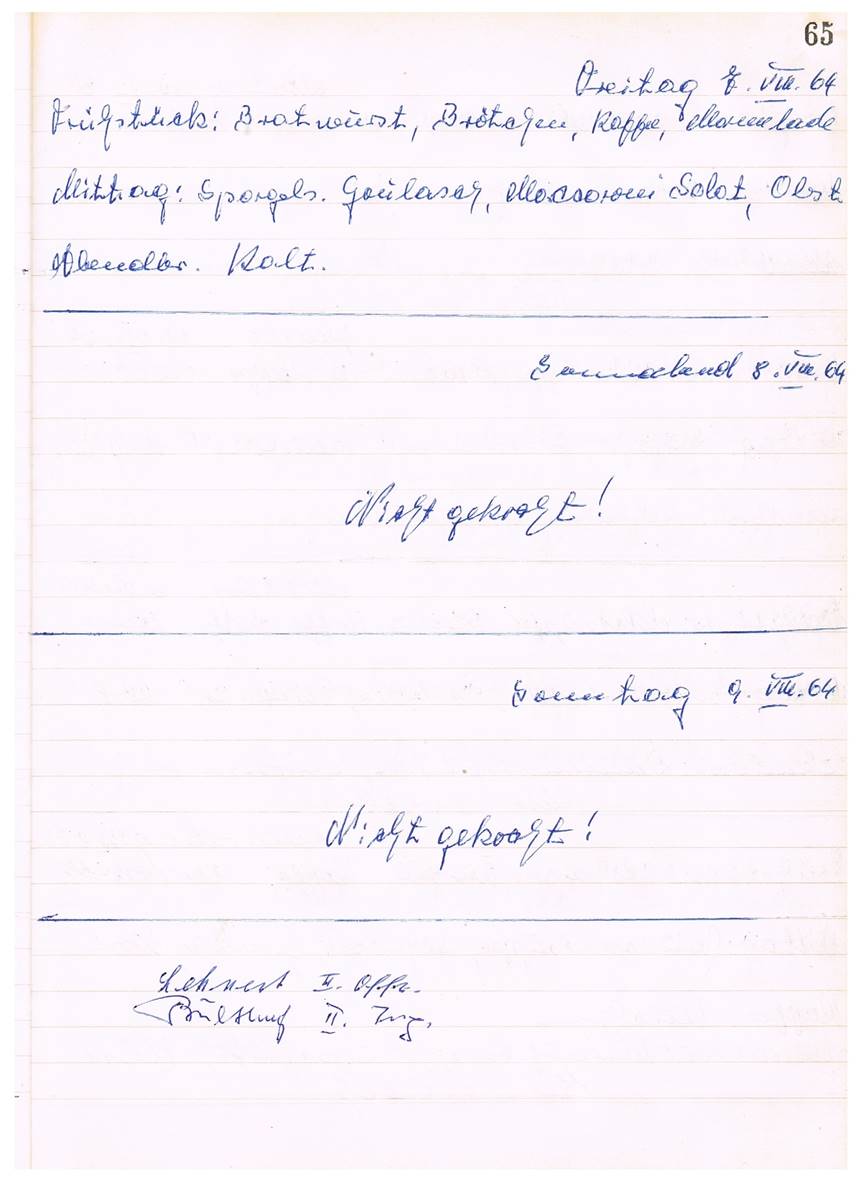 65
Freitag 7. VIII. 64
Frühstück: Bratwurst, Brötchen, Kaffe, Marmelade
Mittag: Spargels. Goulasch, Maccaroni Salat, Obst
Abendbr. Kalt.
Sonnabend 8. VIII. 64
Nicht gekocht!
Sonntag 9. VIII. 64
Nicht gekocht!
Lehnert II. Offz.
II. Ing.